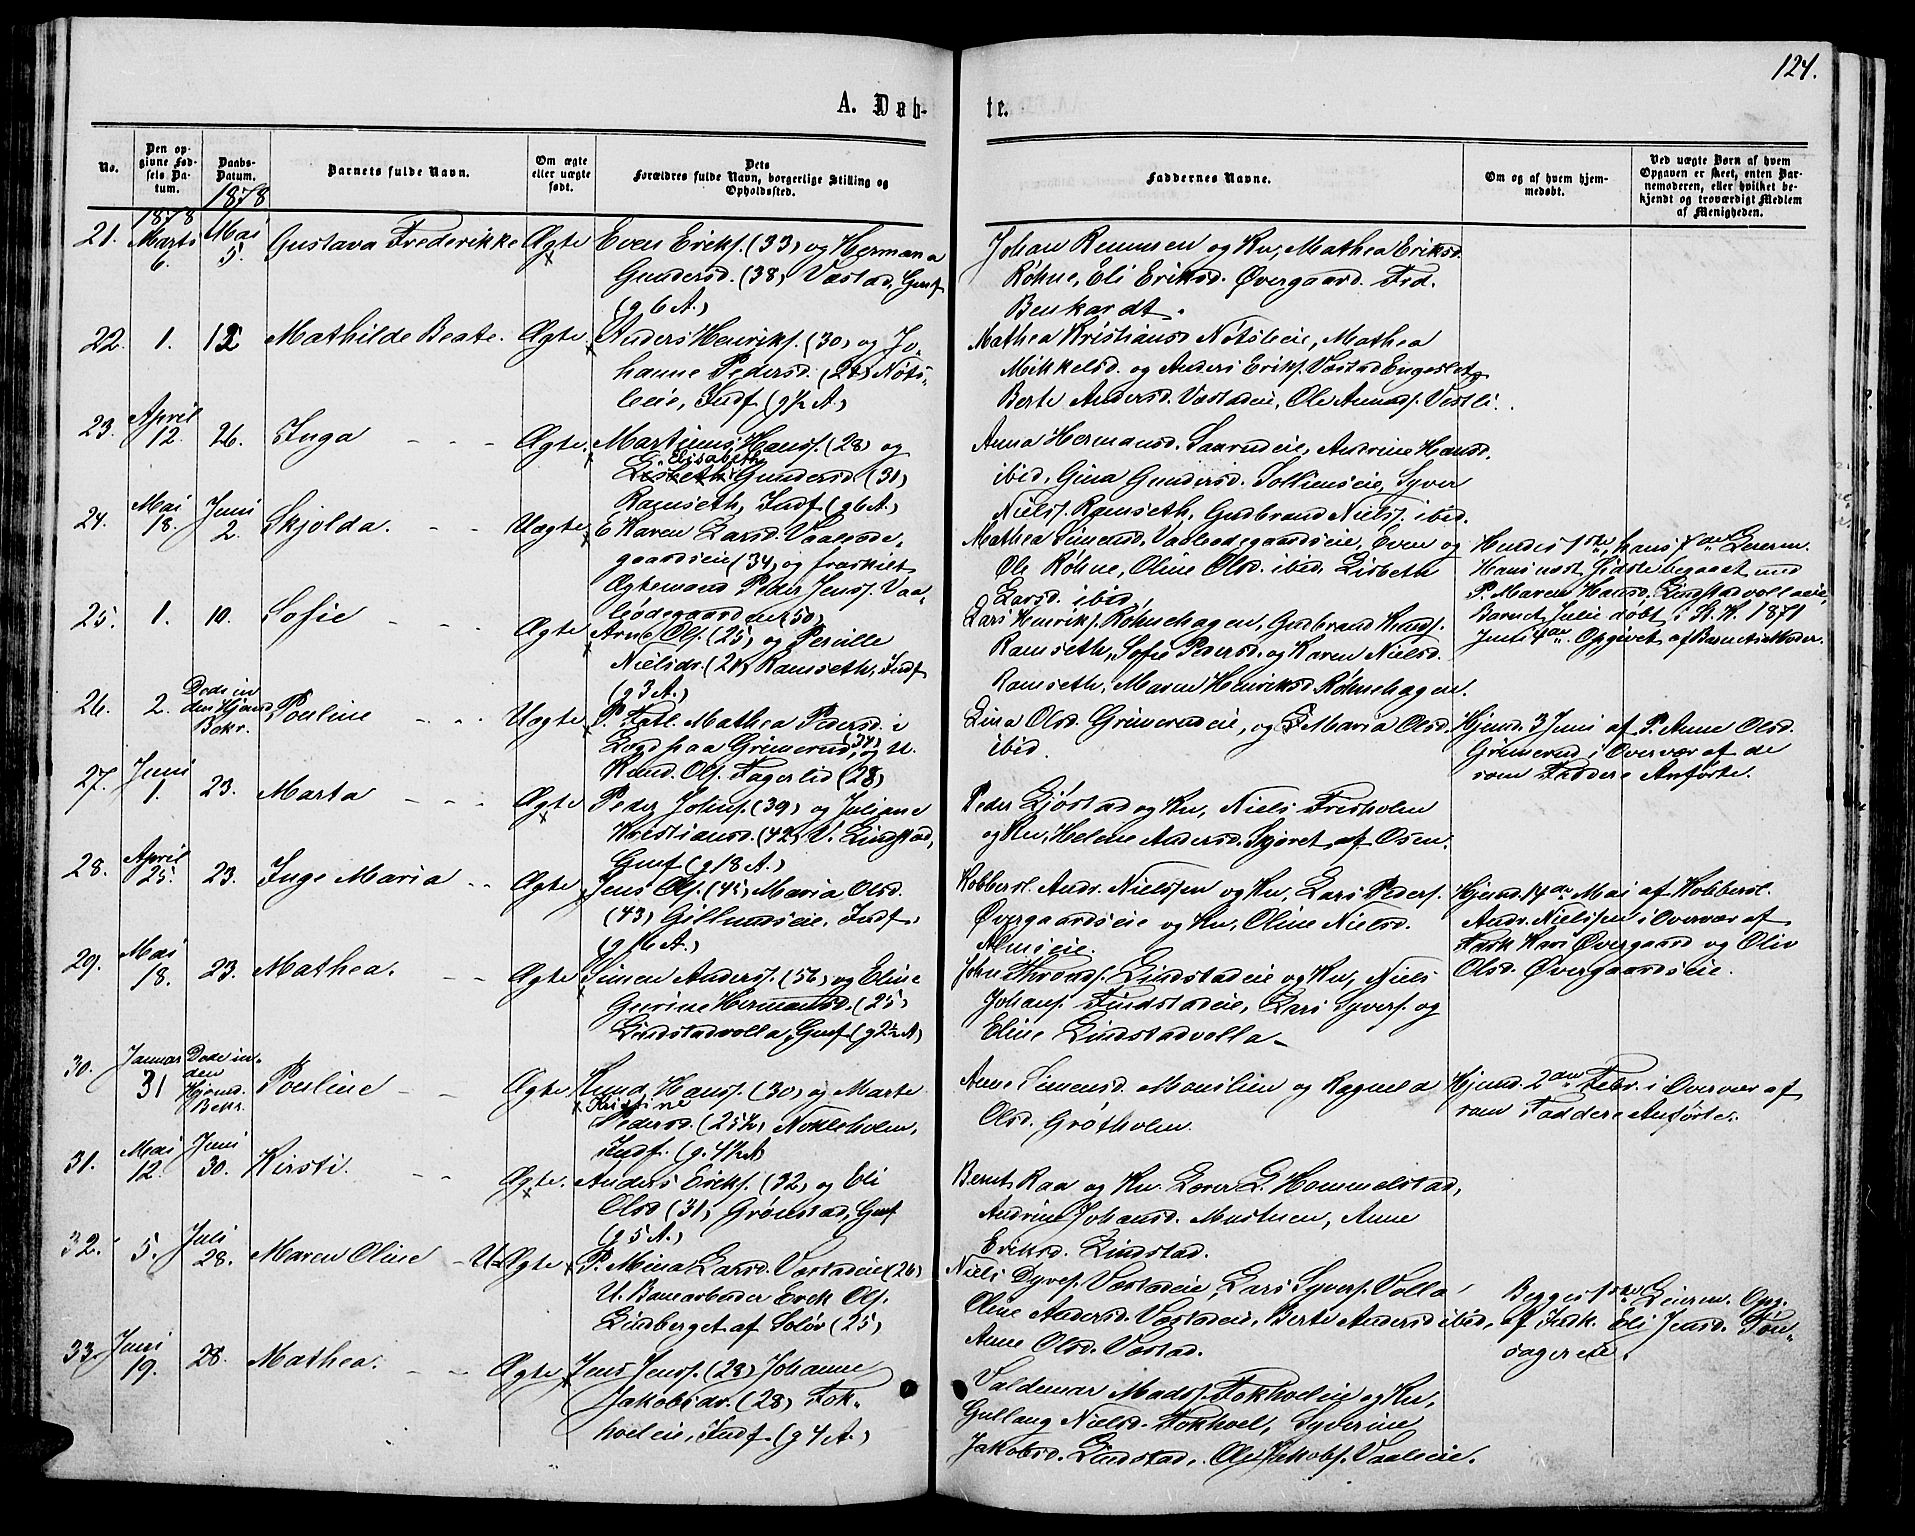 124.
A. Døb-
te.
No.
Den op-
givne Fød-
sels Da-
tum.
Daabs-
Datum.
Barnets fulde Navn.
Om ægte
eller uægte
født.
Dets
Forældres fulde Navn, borgerlige Stilling og
Opholdssted.
Faddernes Navne.
Om og af hvem hjem-
medøbt.
Ved uægte Børn af hvem
Opgaven er skeet, enten Bar-
nemoderen, eller hvilket be-
kjendt og troværdigt Medlem
af Menigheden.
1878
1878
21. Marts 6. Mai 5. Gustava Frederikke Ægte Even Eriks. (33) og Hermana
Gundersd. (38) Væstad, Gmf
(g 6 A.)
Johan Remmen og Kv, Mathea Eriksd.
Røhne, Eli Eriksd. Øvergaard. Frd.
Benkardt.
22. 1. 12 Mathilde Beate. Ægte Anders Henriks. (30) og Jo-
hanne Pedersd. (24) Nøts-
leie, Indf (g ½ A.)
Mathea Kristiansd Nøtsleie, Mathea
Mikkelsd. og Anders Eriks. Væstad Engeslet
Berte Andersd. Væstadeie, Ole Amunds. Vestli.
23. April 12. 26. Inga - - - Ægte. Martinus Hans. (28) og
Elisabeth
Lisbeth Gundersd (31)
Ramseth, Indf (g 6 A.)
Anna Hermansd. Saarudeie, Andrine Hansd.
ibid, Gina Gundersd. Sollienseie, Syver
Niels. Ramseth, Gudbrand Niels. ibid.
24. Mai 18. Juni 2. Skjolda. - - Uægte E Karen Larsd. Vaaløde-
gaardseie (34) og fraskilt
Ægtemand Peder Jens. Vaa-
lødegaardeie (50)
Mathea Simensd. Vaalødegaardseie, Even og
Ole Røhne, Oline Olsd. ibid, Lisbeth
Larsd. ibid,
Hendes 1ste, hans 7de Leierm.
Hans næst sidste begaaet med
P. Maren Hansd. Lindstadvollaeie,
Barnet Julie døbt i K. K. 1871
Juni 4de. Opgivet af Barnets Moder.
25. 1. 10. Sofie - - - Ægte Arne Ols. (25) og Pernille
Nielsdr. (24) Ramseth, Indf
(g 3 A.)
Lars Henriks. Røhnehagen, Gudbrand Knuds.
Ramseth, Sofie Pedersd. og Karen Nielsd.
Ramseth, Maren Henriksd Røhnehagen.
26. 2. Døde in
den Hjemd.
Bekr.
Pouline - - - Uægte P. Fatl. Mathea Pedersd. i
Legd paa Grimerud, (34) og U.
Knud. Ols. Fagerlid (28)
Lina Olsd. Grimerudeie, og E Maria Olsd.
ibid.
Hjemd. 3 Juni af P. Anne Olsd.
Grimerud i Overvær af de
som Faddere Anførte.
27. Juni 1. 23. Marta - - - Ægte Peder Johns. (39) og Juliane
Kristiansd. (42) V. Lindstad,
Gmf (g 18 A.)
Peder Ljøstad og Kv, Niels Fresholm
og Kv, Helene Andersd. Skjøret af Osen.
28. April 25. 23. Inge Maria - - Ægte Jens Ols. (45) Maria Olsd.
(43) Gillundseie, Indf.
(g 16 A.)
Kobbersl. Andr. Nielsen og Kv, Lars Peders.
Øvergaardseie og Kv, Oline Nielsd.
Almseie.
Hjemd. 14de Mai af Kobbersl.
Andr. Nielsen i Overvær af
Fask Kari Øvergaard og Oliv
Olsd. Øvergaardseie.
29. Mai 18. 23. Mathea. - - Ægte Simen Anders. (56) og Eline
Gurine Hermansd. (25)
Lindstadvolla, Gmf (g 2½ A)
John Thronds. Lindstadeie og Kv, Niels
Johans. Lindstadeie, Lars Syvers. og
Eline Lindstadvolla-
30. Januar 31 Døde in-
den
Hjemd.
Bekr.
Pouline - - Ægte Knud Hans. (30) og Marte
Kristine
Pedersd. (25½) Nokleholm,
Indf. (g. 4½ A)
Anne Simensd. Monilien og Ragnela
Olsd. Grøtholm.
Hjemd. 2den Febr. i Overvær af
som Faddere Anførte.
31. Mai 12. Juni 30. Kirsti. - - Ægte. Anders Eriks. (32) og Eli
Olsd (31) Grønstad, Gmf
(g 5 A.)
Bernt Raa og Kv. Lærer L. Hommelstad,
Andrine Johansd. Mustuen, Anne
Eriksd. Lindstad.
32. 5. Juli 28. Maren Oline - U-Ægte P. Mina Larsd. Væstadeie (26)
U. Banearbeder Erek Ols.
Lindberget af Solør (25)
Niels Dyres. Væstadeie, Lars Syvers. Volla
Oline Andersd. Væstadeie, Berte Andersd ibid,
Anne Olsd. Væstad.
Begges 1ste Leierm. Opg.
af Indk. Eli Jensd. Ton-
sagereie.
33. Juni 19. 28. Mathea. - - Ægte Jens Jens. (23) Johanne
Jakobsdr. (28) Fok-
hoeleie, Indf (g 4 A.)
Valdemar Mads. Fokhoeleie og Kv,
Gullaug Nielsd. Fokhoel, Syverine
Jakobsd. Lindstad, Ole Jakobs. Vaaleie.